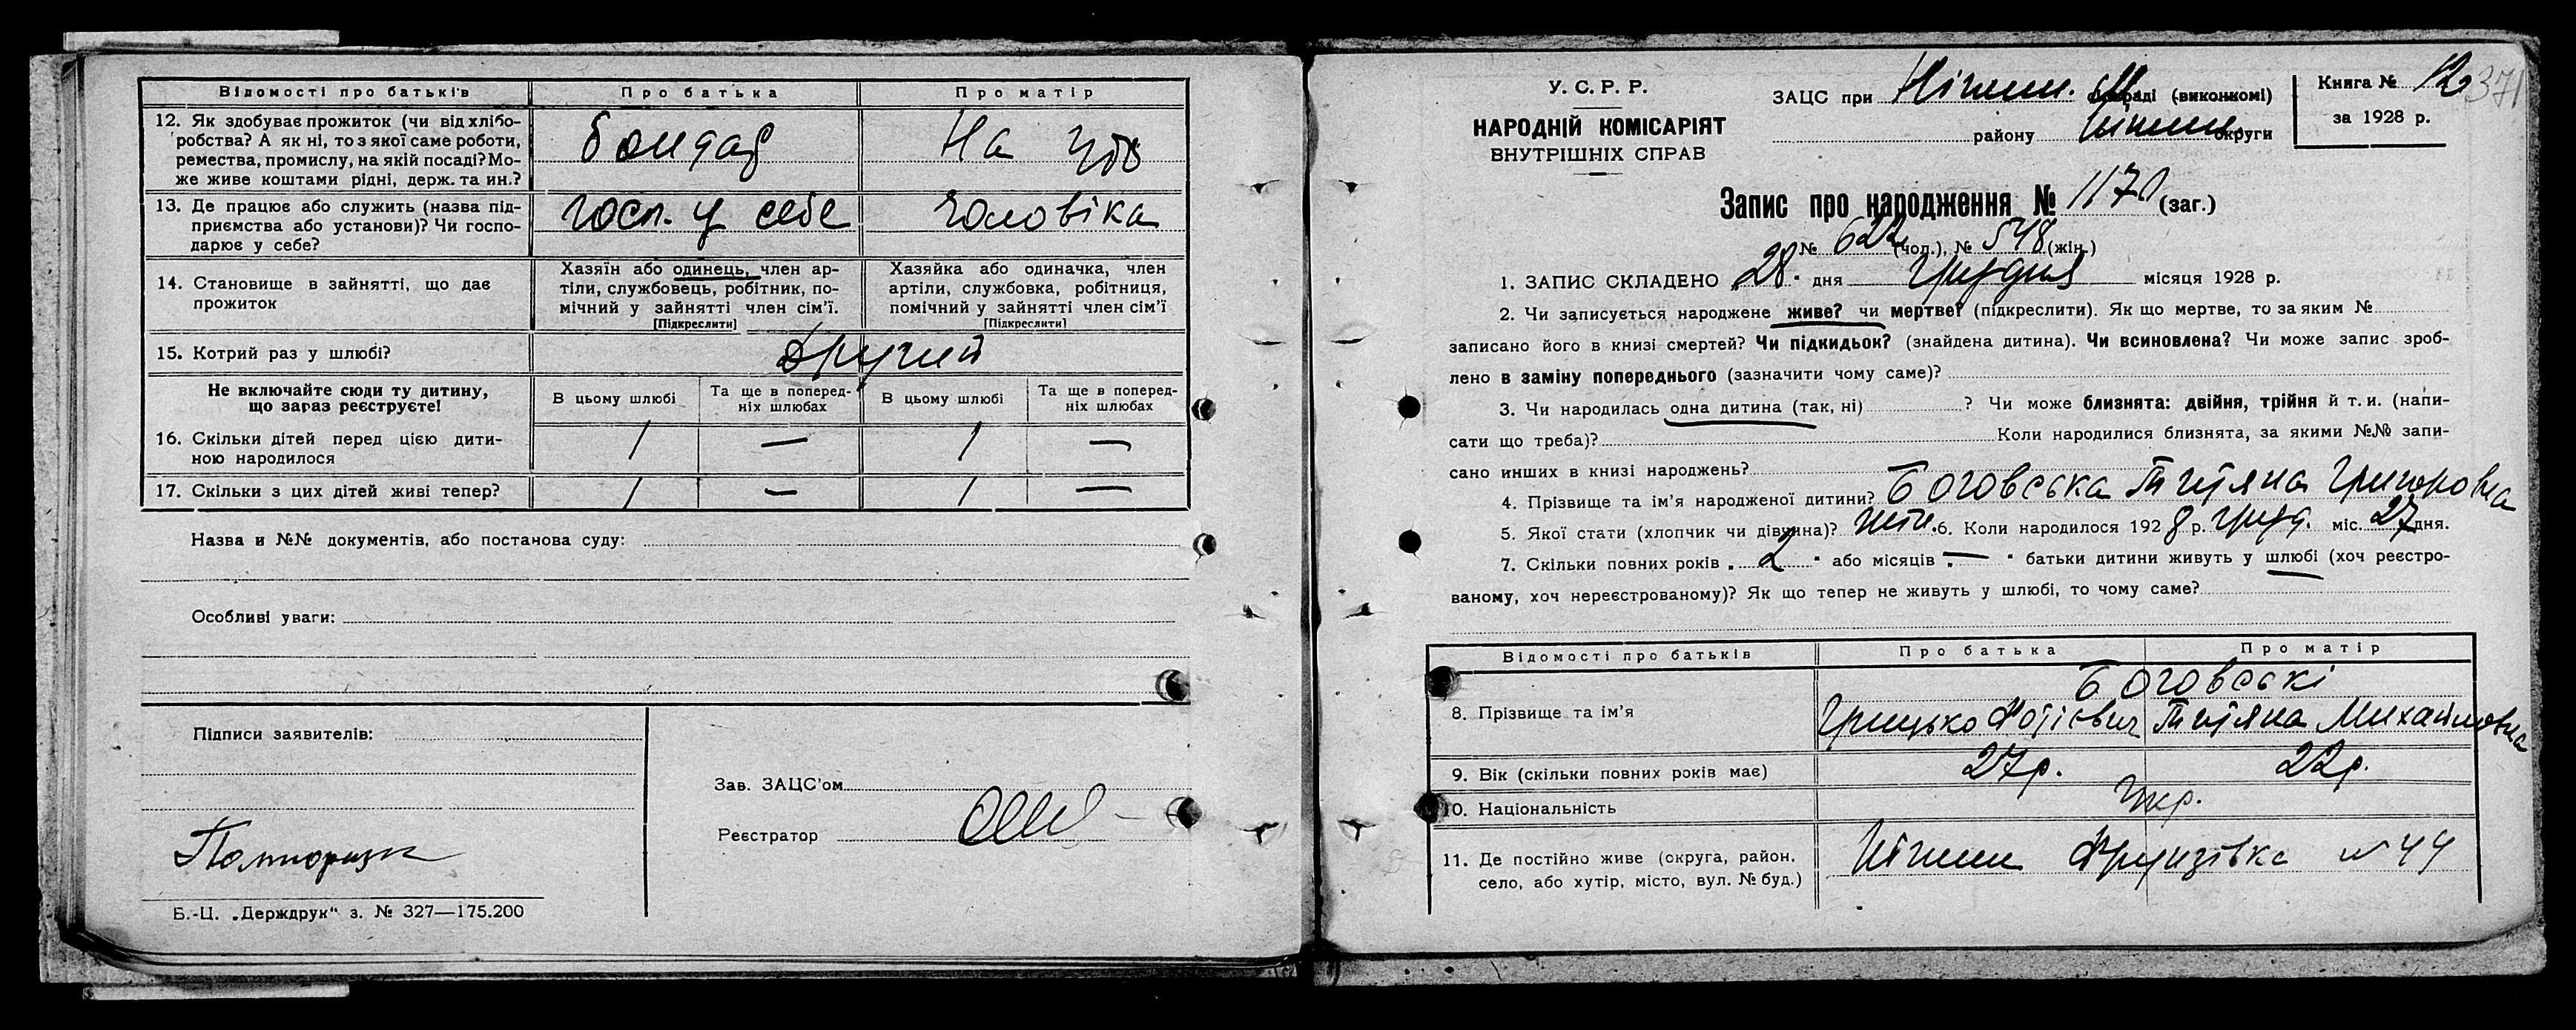 Відомості про батьків Про батька Про матір
12. Як здобуває прожиток (чи від хлібо-
робства? А як ні, то з якої саме роботи,
ремества, промислу, на якій посаді? Мо-
же живе коштами рідні, держ. та ин.?
бондар На утр
13. Де працює або служить (назва під-
приємства або установи)? Чи госпо-
дарює у себе?
госп. у себе чоловіка
14. Становище в зайнятті, що дає
прожиток
Хазяїн або одинець, член ар-
тіли, службовець, робітник, по-
мічний у зайнятті член сім'ї.
[Підкреслити]
Хазяйка або одиначка, член
артіли, службовка, робітниця,
помічний у зайнятті член сім'ї
[Підкреслити]
15. Котрий раз у шлюбі? другий
Не включайте сюди ту дитину,
що зараз реєструєте!
В цьому шлюбі Та ще в поперед-
ніх шлюбах В цьому шлюбі Та ще в поперед-
ніх шлюбах
16. Скільки дітей перед цією дити-
ною народилося 1 — 1 —
17. Скільки з цих дітей живі тепер? 1 — 1 —
Назва и №№ документів, або постанова суду:
Особливі уваги:
Підписи заявителів:
Зав. ЗАЦС'ом
Реєстратор
Б.-Ц. „Держдрук" з. № 327—175.200
У. С. Р. Р.
НАРОДНІЙ КОМІСАРІЯТ
ВНУТРІШНІХ СПРАВ
ЗАЦС при Ніжин. М (виконкомі)
району Ніжин. округи
Книга № 12
за 1928 р.
371
Запис про народження № 1170 (заг.)
№ 622 (чол.), № 548 (жін.)
1. ЗАПИС СКЛАДЕНО „28" дня грудня місяця 1928 р.
2. Чи записується народжене живе? чи мертве? (підкреслити). Як що мертве, то за яким №
записано його в книзі смертей? Чи підкидьок? (знайдена дитина). Чи всиновлена? Чи може запис зроб-
лено в заміну попереднього (зазначити чому саме)?
3. Чи народилась одна дитина (так, ні) ? Чи може близнята: двійня, трійня й т. и. (напи-
сати що треба)? Коли народилися близнята, за якими №№ запи-
сано инших в книзі народжень?
4. Прізвище та ім'я народженої дитини? Боговська Титяна Григоровна
5. Якої стати (хлопчик чи дівчина)? жін. 6. Коли народилося 1928 р. груд. міс. 27 дня.
7. Скільки повних років „ 2 " або місяців „ — " батьки дитини живуть у шлюбі (хоч реєстро-
ваному, хоч нереєстрованому)? Як що тепер не живуть у шлюбі, то чому саме?
Відомості про батьків Про батька Про матір
Боговські
8. Прізвище та ім'я Грицько Фотієвич Титяна Михайловна
9. Вік (скільки повних років має) 27 р. 22 р.
10. Національність Укр.
11. Де постійно живе (округа, район.
село, або хутір, місто, вул. № буд.)
Ніжин Фрунзівка № 44